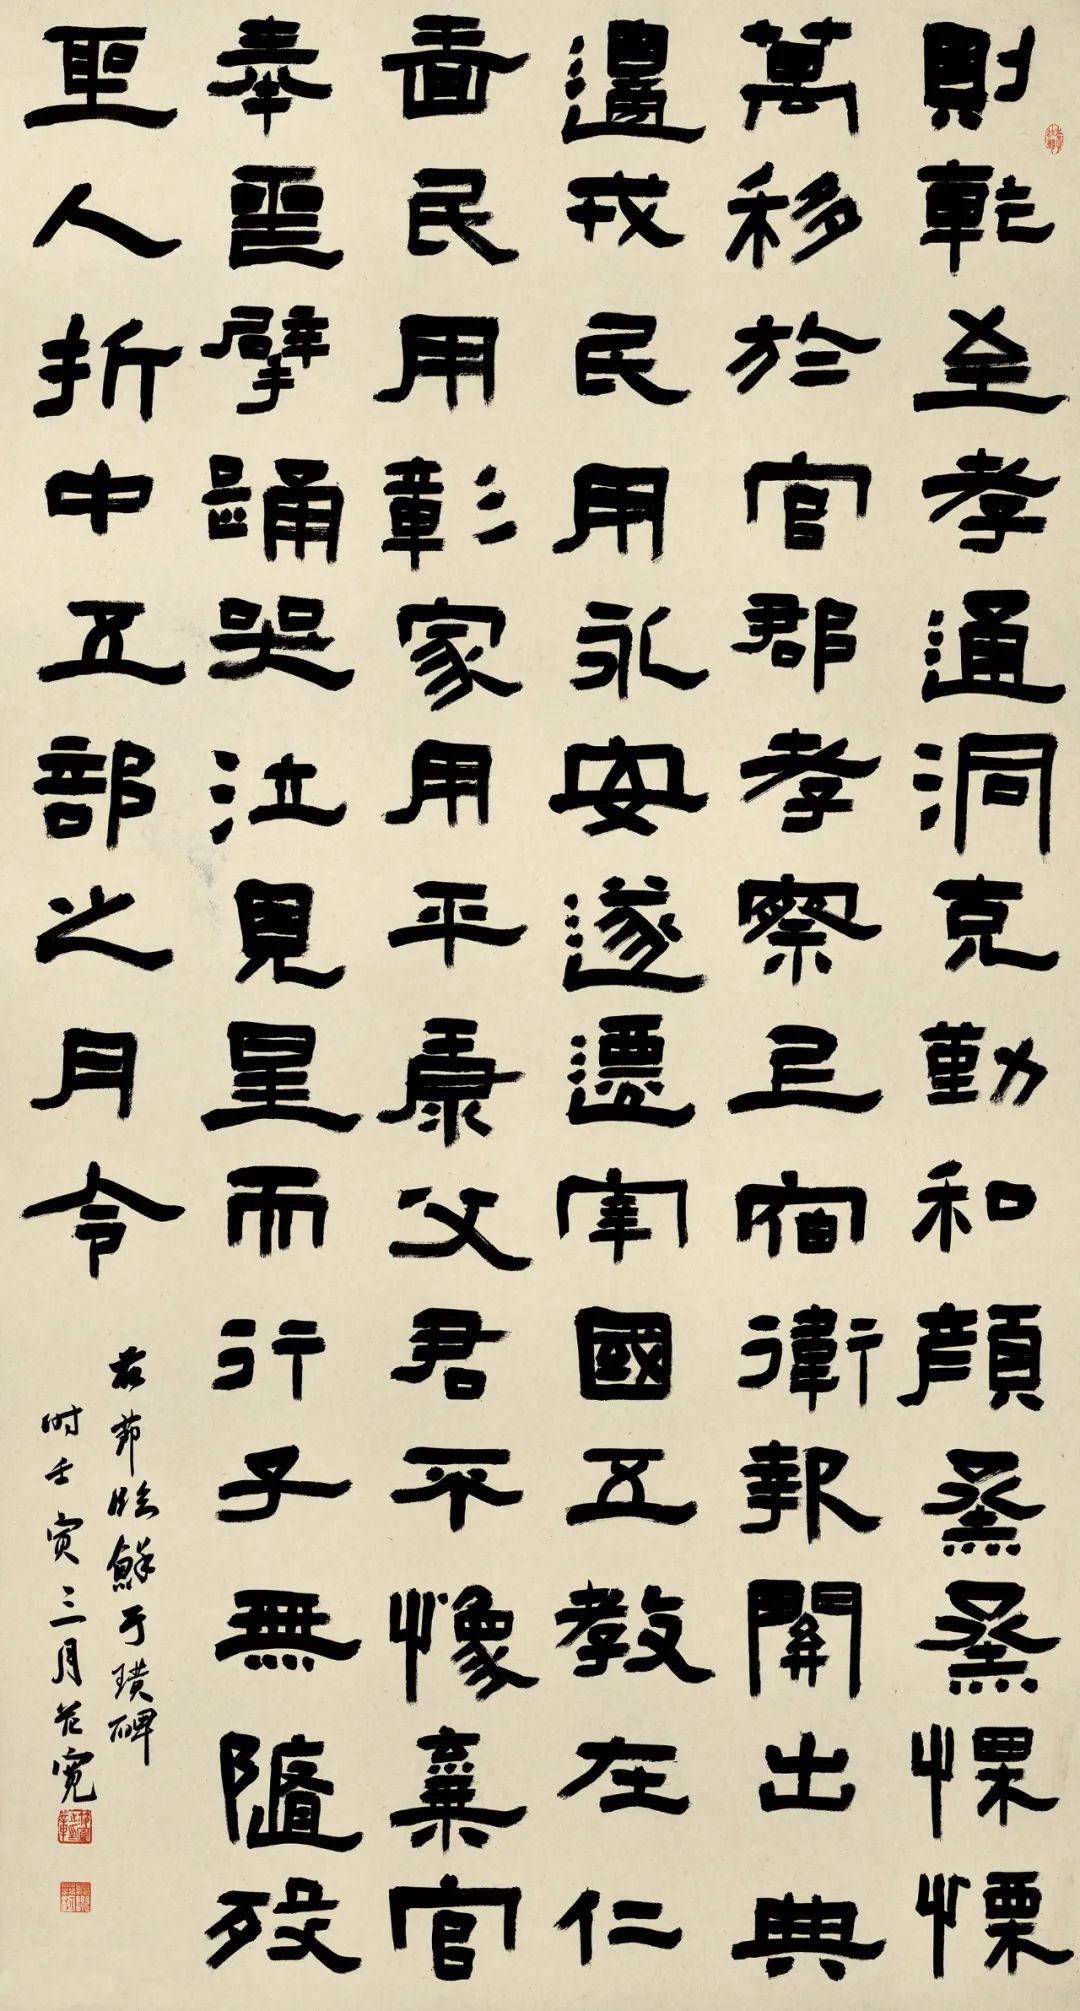 則乾至孝通洞克勤和顏烝烝慄慄
萬移於官郡孝察上宿衛報關出典
邊戎民用永安遂遷宰國五教在仁
啚民用彰家用平康父君不像棄官
奉喪擗踊哭泣見星而行子無隨歿
聖人折中五部之月令
右節臨鮮于璜碑
時壬寅三月范寬